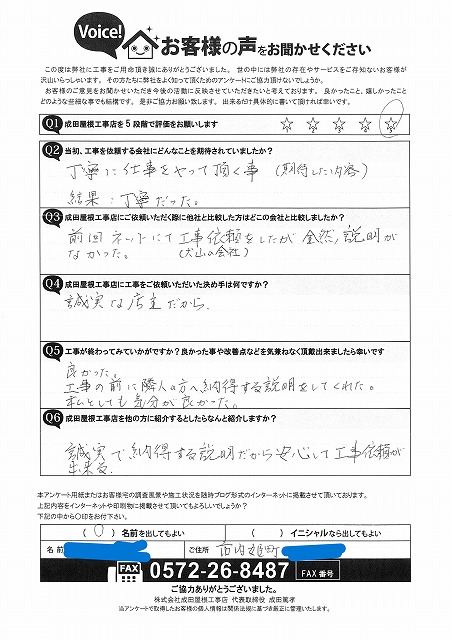 Voice!
お客様の声をお聞かせください
この度は弊社に工事をご用命頂き誠にありがとうございました。世の中には弊社の存在やサービスをご存知ないお客様が
沢山いらっしゃいます。その方たちに弊社をよく知って頂くためのアンケートにご協力頂けないでしょうか。
お客様のご意見をお聞かせいただき今後の活動に反映させていただきたいと考えております。良かったこと、嬉しかったこと
どのような些細な事でも結構です。是非ご協力お願い致します。出来るだけ具体的に書いて頂ければ幸いです。
Q1 成田屋根工事店を5段階で評価をお願いします ☆ ☆ ☆ ☆ ☆
Q2 当初、工事を依頼する会社にどんなことを期待されていましたか?
丁寧に仕事をやって頂く事 (期待した内容)
結果:丁寧だった。
Q3 成田屋根工事店にご依頼いただく際に他社と比較した方はどこの会社と比較しましたか?
前回ネットにて工事依頼をしたが全然、説明が
なかった。 (犬山の会社)
Q4 成田屋根工事店に工事をご依頼いただいた決め手は何ですか?
誠実な店主だから
Q5 工事が終わってみていかがですか?良かった事や改善点などを気兼ねなく頂戴出来ましたら幸いです
良かった。
工事の前に隣人の方へ納得する説明をしてくれた。
私としても気分が良かった。
Q6 成田屋根工事店を他の方に紹介するとしたらなんと紹介しますか?
誠実で納得する説明だから安心して工事依頼が
出来る
本アンケート用紙またはお客様宅の調査風景や施工状況を随時ブログ形式のインターネットに掲載させて頂いております。
上記内容をインターネットや印刷物に掲載させて頂いてもよろしいでしょうか?
下記の中から〇印をお付下さい。
( 〇 ) 名前を出してもよい ( ) イニシャルなら出してもよい
名前 ご住所 市内
FAX 0572-26-8487 FAX番号
ご協力ありがとうございました。
株式会社成田屋根工事店 代表取締役 成田篤孝
当アンケートで取得したお客様の個人情報は関係法規に基づき厳正に管理いたします。